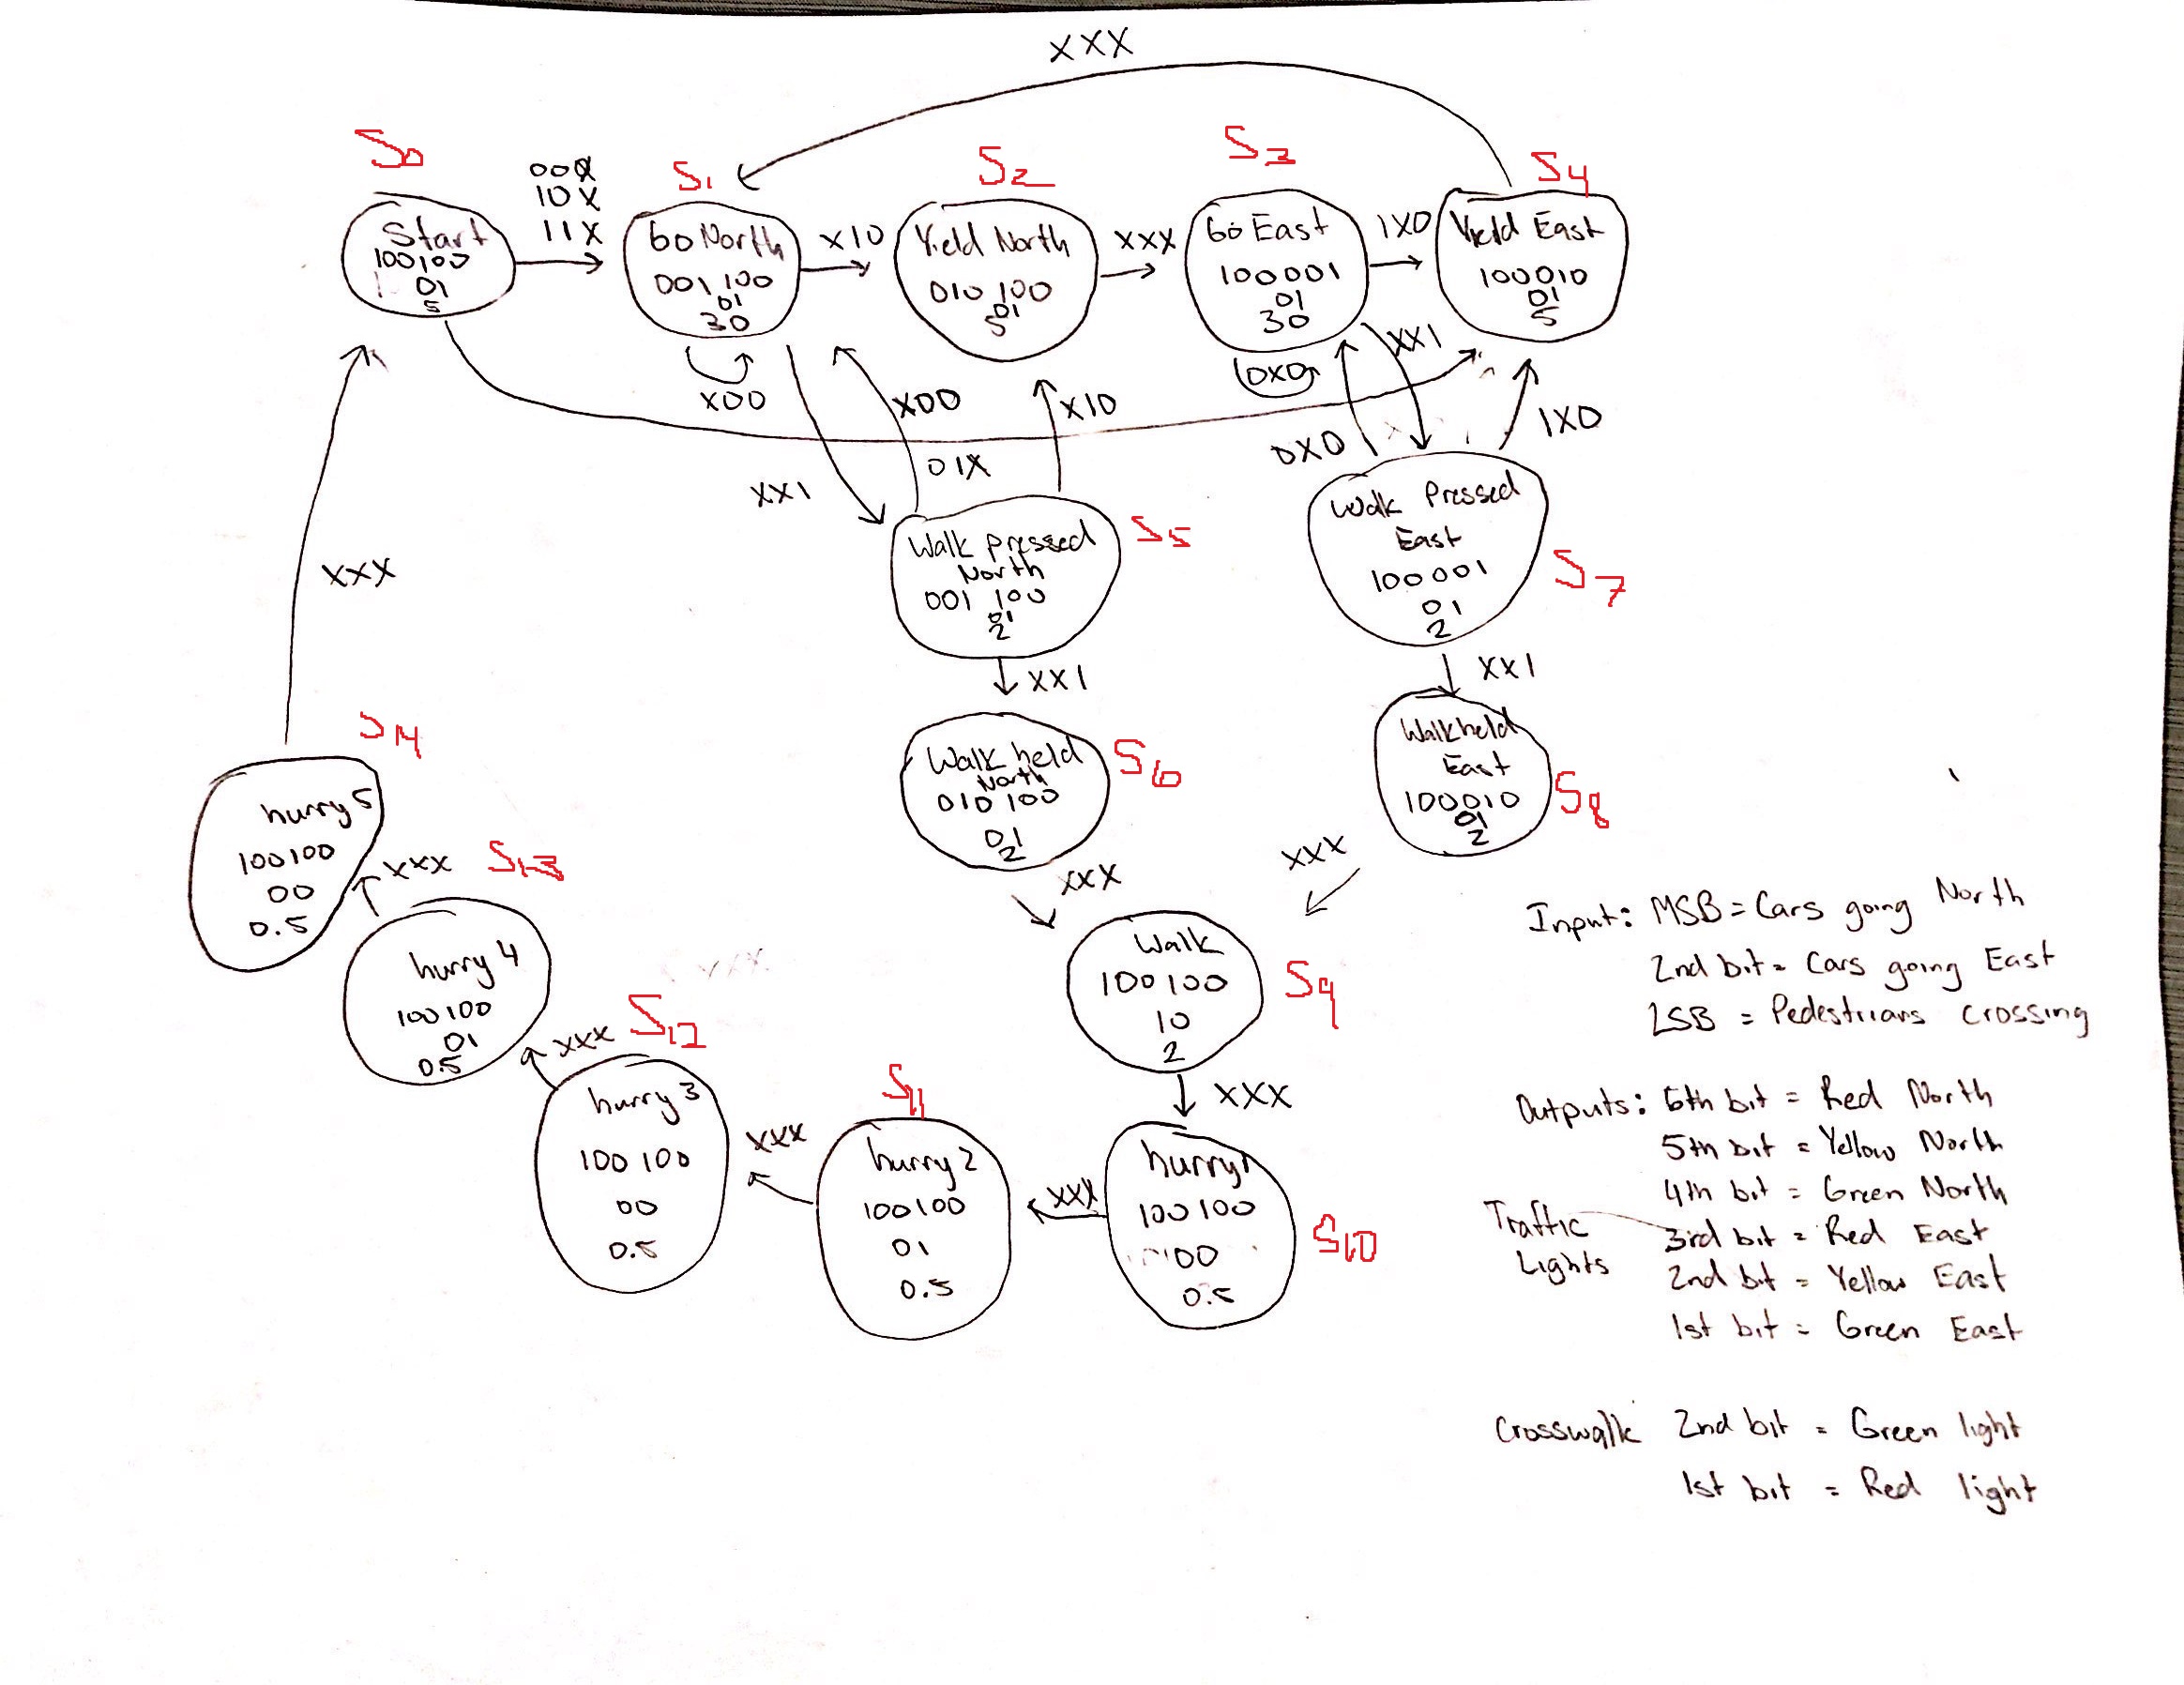 XXX
S0
00X
10X
11X
S1
S2
S3
S4
Start
100100
01
5
Go North
001 100
01
30
X10
Yield North
010 100
01
5
XXX
Go East
100001
01
30
1X0
Yield East
100010
01
5
X00
X00
X10
0X0
XX1
0X0
1X0
01X
XX1
Walk pressed
North
001 100
01
2
S5
Walk Pressed
East
100001
01
2
S7
XXX
XX1
XX1
Walk held
North
010 100
01
2
S6
Walk held
East
100010
01
2
S8
S14
hurry 5
100100
00
0.5
XXX
S13
hurry 4
100100
01
0.5
XXX
XXX
Walk
100 100
10
2
S9
XXX
S12
hurry 3
100 100
00
0.5
XXX
S11
hurry 2
100100
01
0.5
XXX
XXX
hurry 1
100 100
00
0.5
S10
Input: MSB = Cars going North
2nd bit = Cars going East
LSB = Pedestrians crossing
Outputs: 6th bit = Red North
5th bit = Yellow North
4th bit = Green North
Traffic
Lights
3rd bit = Red East
2nd bit = Yellow East
1st bit = Green East
Crosswalk 2nd bit = Green light
1st bit = Red light